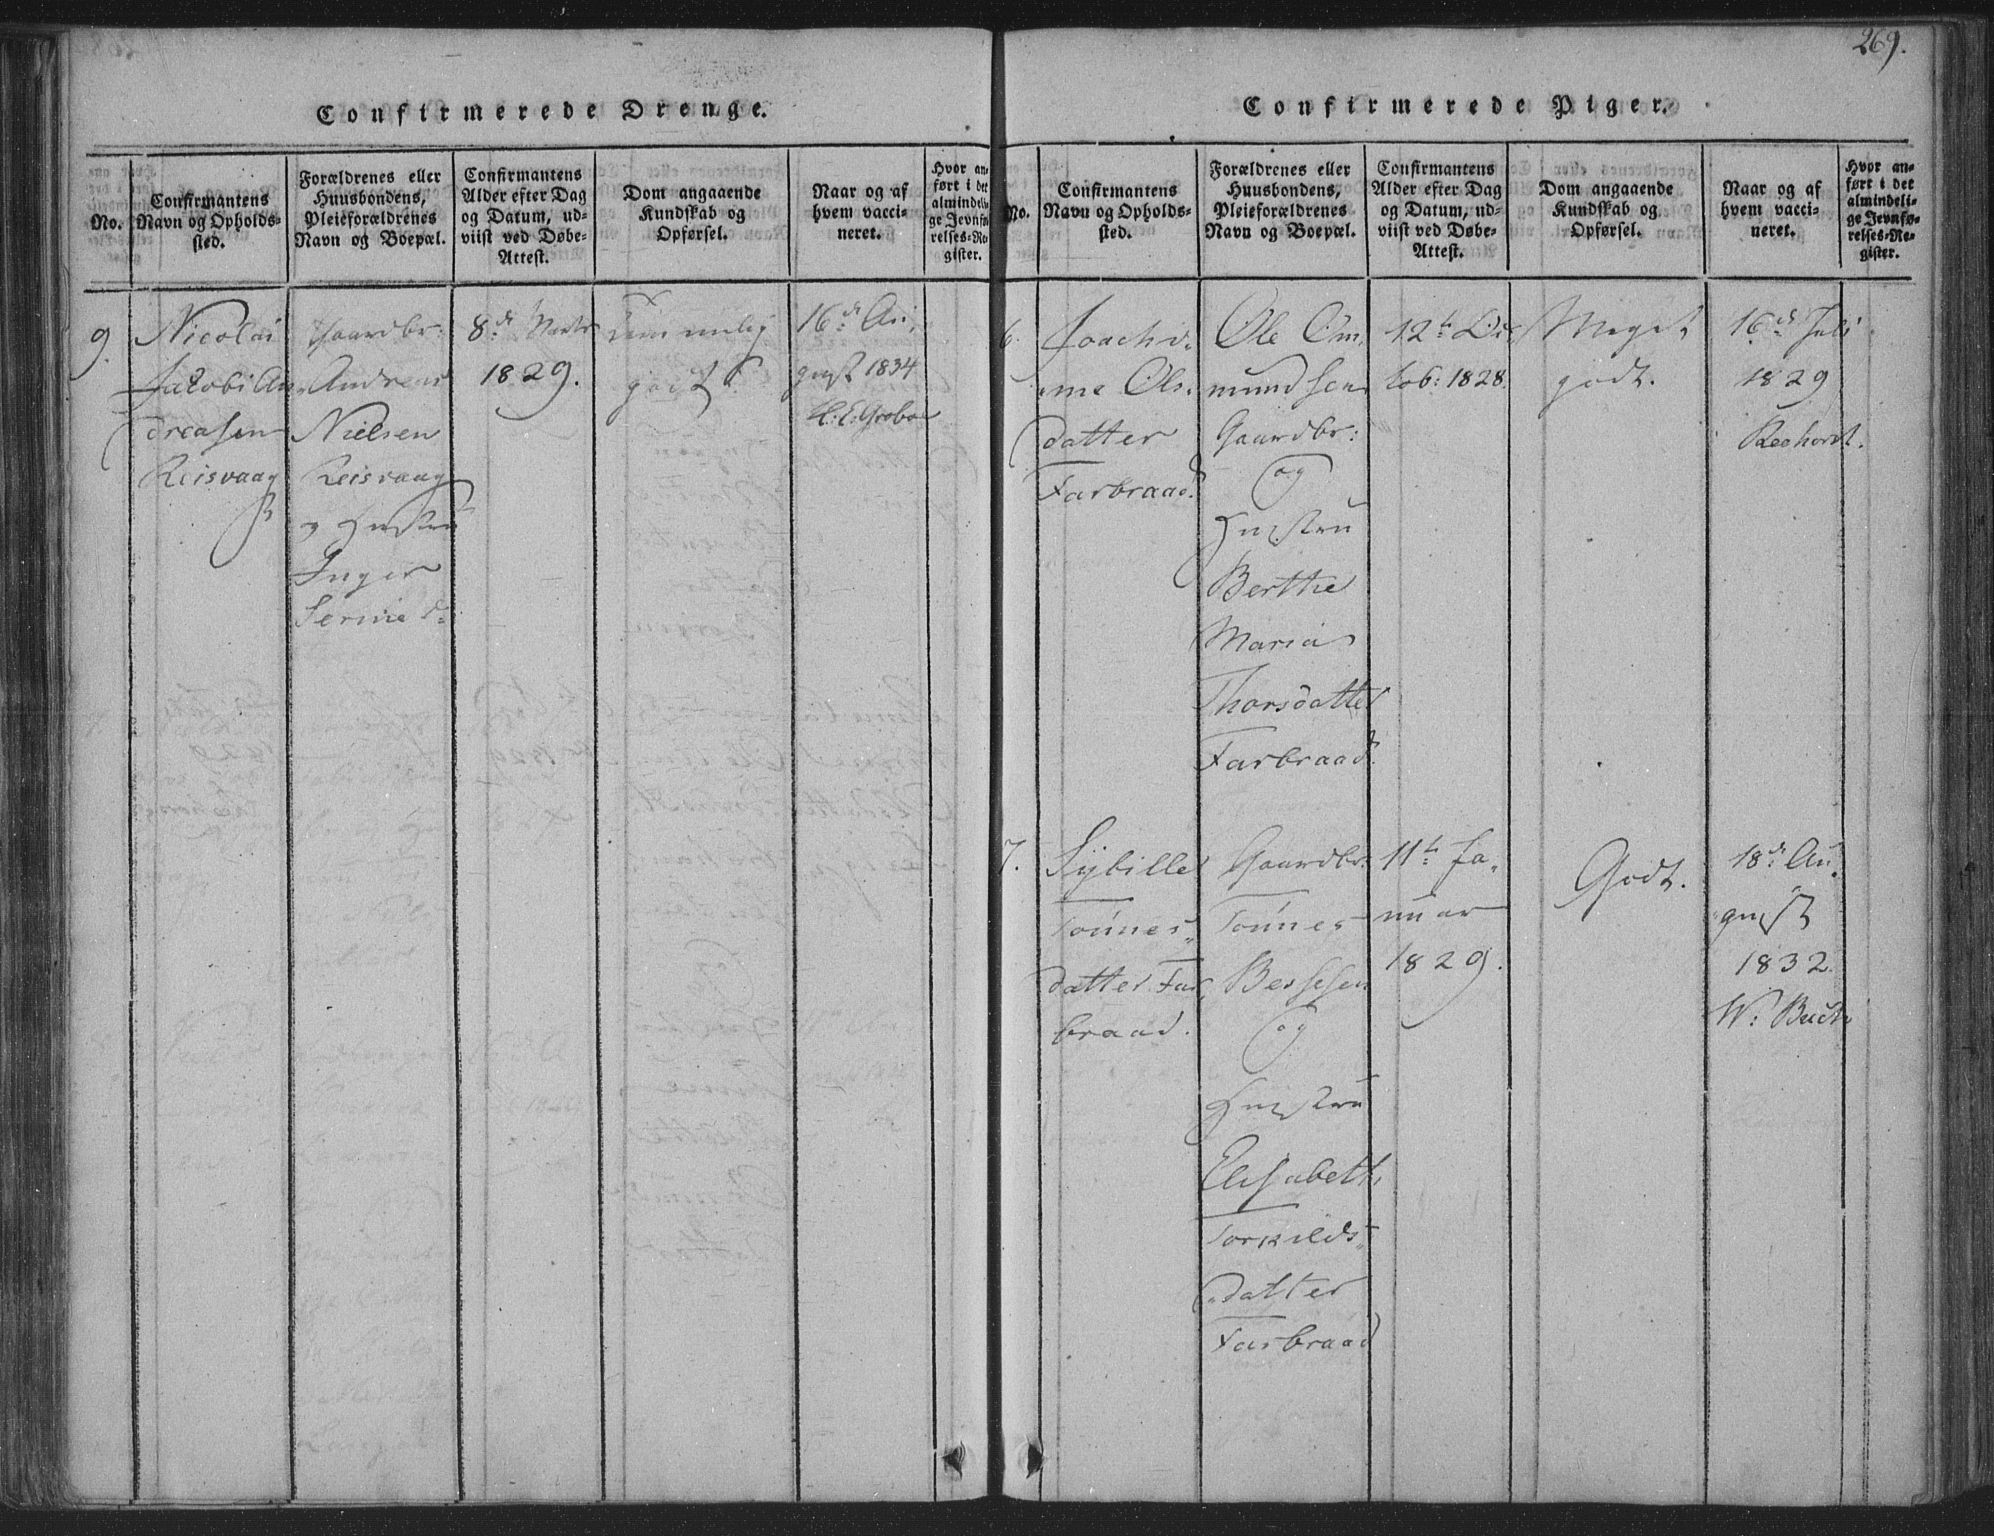 269.
Confirmerede Drenge.
No.
Confirmantens
Navn og Opholds-
sted.
Forældrenes eller
Huusbondens,
Pleieforældrenes
Navn og Boepæl.
Confirmantens
Alder efter Dag
og Datum, ud-
viist ved Døbe-
Attest.
Dom angaaende
Kundskab og
Opførsel.
Naar og af
hvem vacci-
neret.
Hvor an-
ført i det
almindeli-
ge Jevnfø-
relses-Re-
gister.
9.
Nicolai
Jacobi An
dreasen
Reisvaag
Gaardbr:
Andreas
Nielsen
Reisvaag
og Hustru
Inger
Serine d:
8de
1829.
temmelig
godt
16de Au,
gust 1834
H. E. Grobo
Confirmerede Piger.
No.
Confirmantens
Navn og Opholds-
sted.
Forældrenes eller
Huusbondens,
Pleieforældrenes
Navn og Boepæl.
Confirmantens
Alder efter Dag
og Datum, ud-
viist ved Døbe-
Attest.
Dom angaaende
Kundskab og
Opførsel.
Naar og af
hvem vacci-
neret.
Hvor an-
ført i det
almindeli-
ge Jevnfø-
relses-Re-
gister.
6.
Joachi-
me Ols-
datter
Farbraad.
Ole Om,
mundsen
Gaardbr:
og
Hustru
Berthe
Maria
Thorsdatter
Farbraad.
12te Oc
tob: 1828.
Meget
godt.
16de Juli
1829
Reehorst.
7.
Sybille
Tønnes-
datter Far,
braad.
Gaardbr:
Tønnes
Bersesen
og
Hustru
Elisabeth
Torkilds-
datter
Farbraad
11te Ja-
nuar
1829.
Godt.
18de Au-
gust
1832.
W: Buch